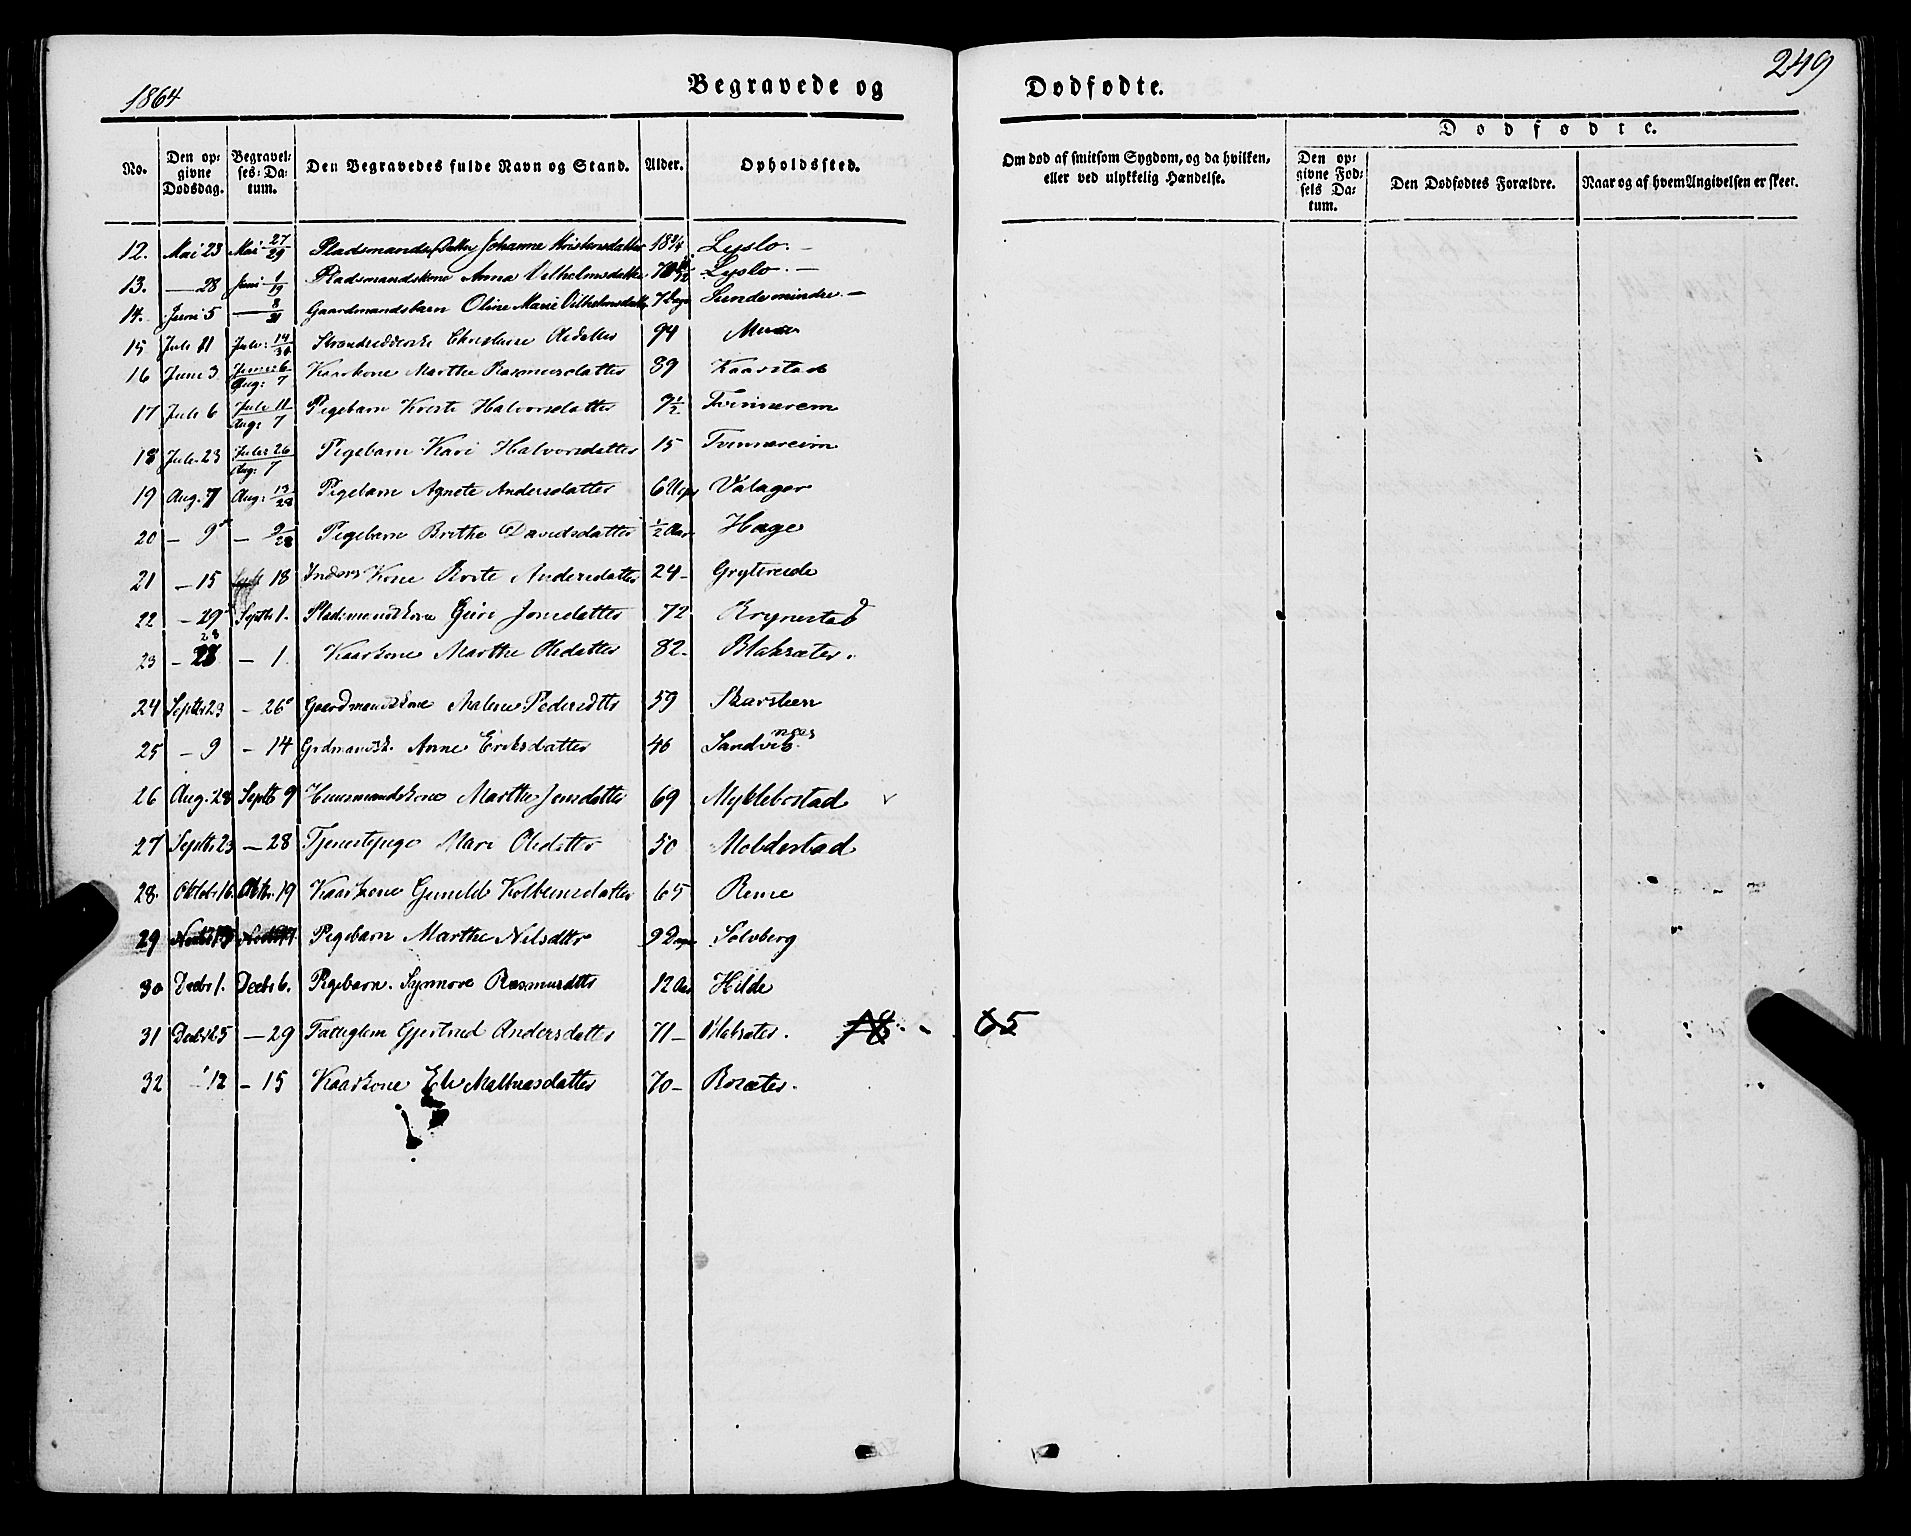 1864
Begravede og Dødfødte.
249
No.
Den opgivne Dødsdag.
Begravelses-Datum.
Den Begravedes fulde Navn og Stand.
Alder.
Opholdssted.
Om død af smitsom Sygdom, og da hvilken, eller ved ulykkelig Hændelse.
Dødfødte.
Den opgivne Fødsels Datum.
Den Dødfødtes Forældre.
Naar og af hvem Angivelsen er skeet.
12. Mai 23 Mai 27/29 Pladsmands Datter Johanne Kristensdatter 18 3/4 Lyslo. —
13. — 28 Juni 1/19 Pladsmandskone Anna Vilhelmsdatter Lyslo. —
14. Juni 5 — 8/21 Gaardmandsbarn Oline Marie Vilhelmsdatter 7 Dage Sundsmindre. —
15 Juli 11 Juli: 14/30 Christine Oledatter 94
16 Juni 3 Juni 6/Aug: 7 Kaarkone Marthe Rasmusdatter 89 Kaarstad
17 Juli 6 Juli 11/Aug: 7 Pigebarn Kirsti Halvorsdatter 9 1/2 Tvinnereim
18 Juli 23 Juli 26/Aug: 7 Pigebarn Kari Halvorsdatter 15 Tvinnereim
19 Aug. 7 Aug: 13/28 Pigebarn Agnete Andersdatter 6 Uger Valager
20 — 9 — 9/28 Pigebarn Brithe Davidsdatter 1/2 Aar Hage
21 — 15 18 Inders Kone Andersdatter 24 - Grytereide
22 — 29 Septbr 1. Pladsmandskone Guri Jonsdatter 72 Brynestad
23 — 28 — 1. Kaarkone Marthe Oledatter 82 - Blaksæter.
24 Septbr 23 — 26 Gaardmandskone Malene Pedersdtter 59 Skarsteen
25 — 9 — 14 Grdmandsk. Anne Eriksdatter 46 Sandvik
26 Aug. 28 Septb 9 Huusmandskone Marthe Jonsdatter 69 Myklebostad
27 Septbr 23 — 28 Tjenestepige Mari Olsdatter 50 Moldestad
28. Oktobr 16. Oktbr. 19 Kaarkone Gunild Kolbensdatter 65 Reme
29 Pigebarn Marthe Nilsdttr 9 Dage Solvberg
30 Decbr 1. Decbr 6. Pigebarn. Synnove Rasmusdttr 12 Aar Hilde
31 Decbr — 29 Fattiglem Gjertrud Andersdatter 71 — Blaksæter. 65
32 12 — 15 Kaarkone Eli Mathiasdatter 70 — Roset.